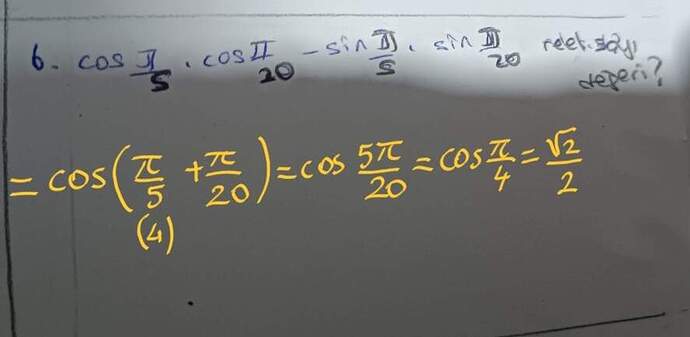 6. cos π/5 . cos π/20 - sin π/5 . sin π/20
değeri?
= cos(π/5 + π/20) = cos 5π/20 = cos π/4 = √2/2
(4)